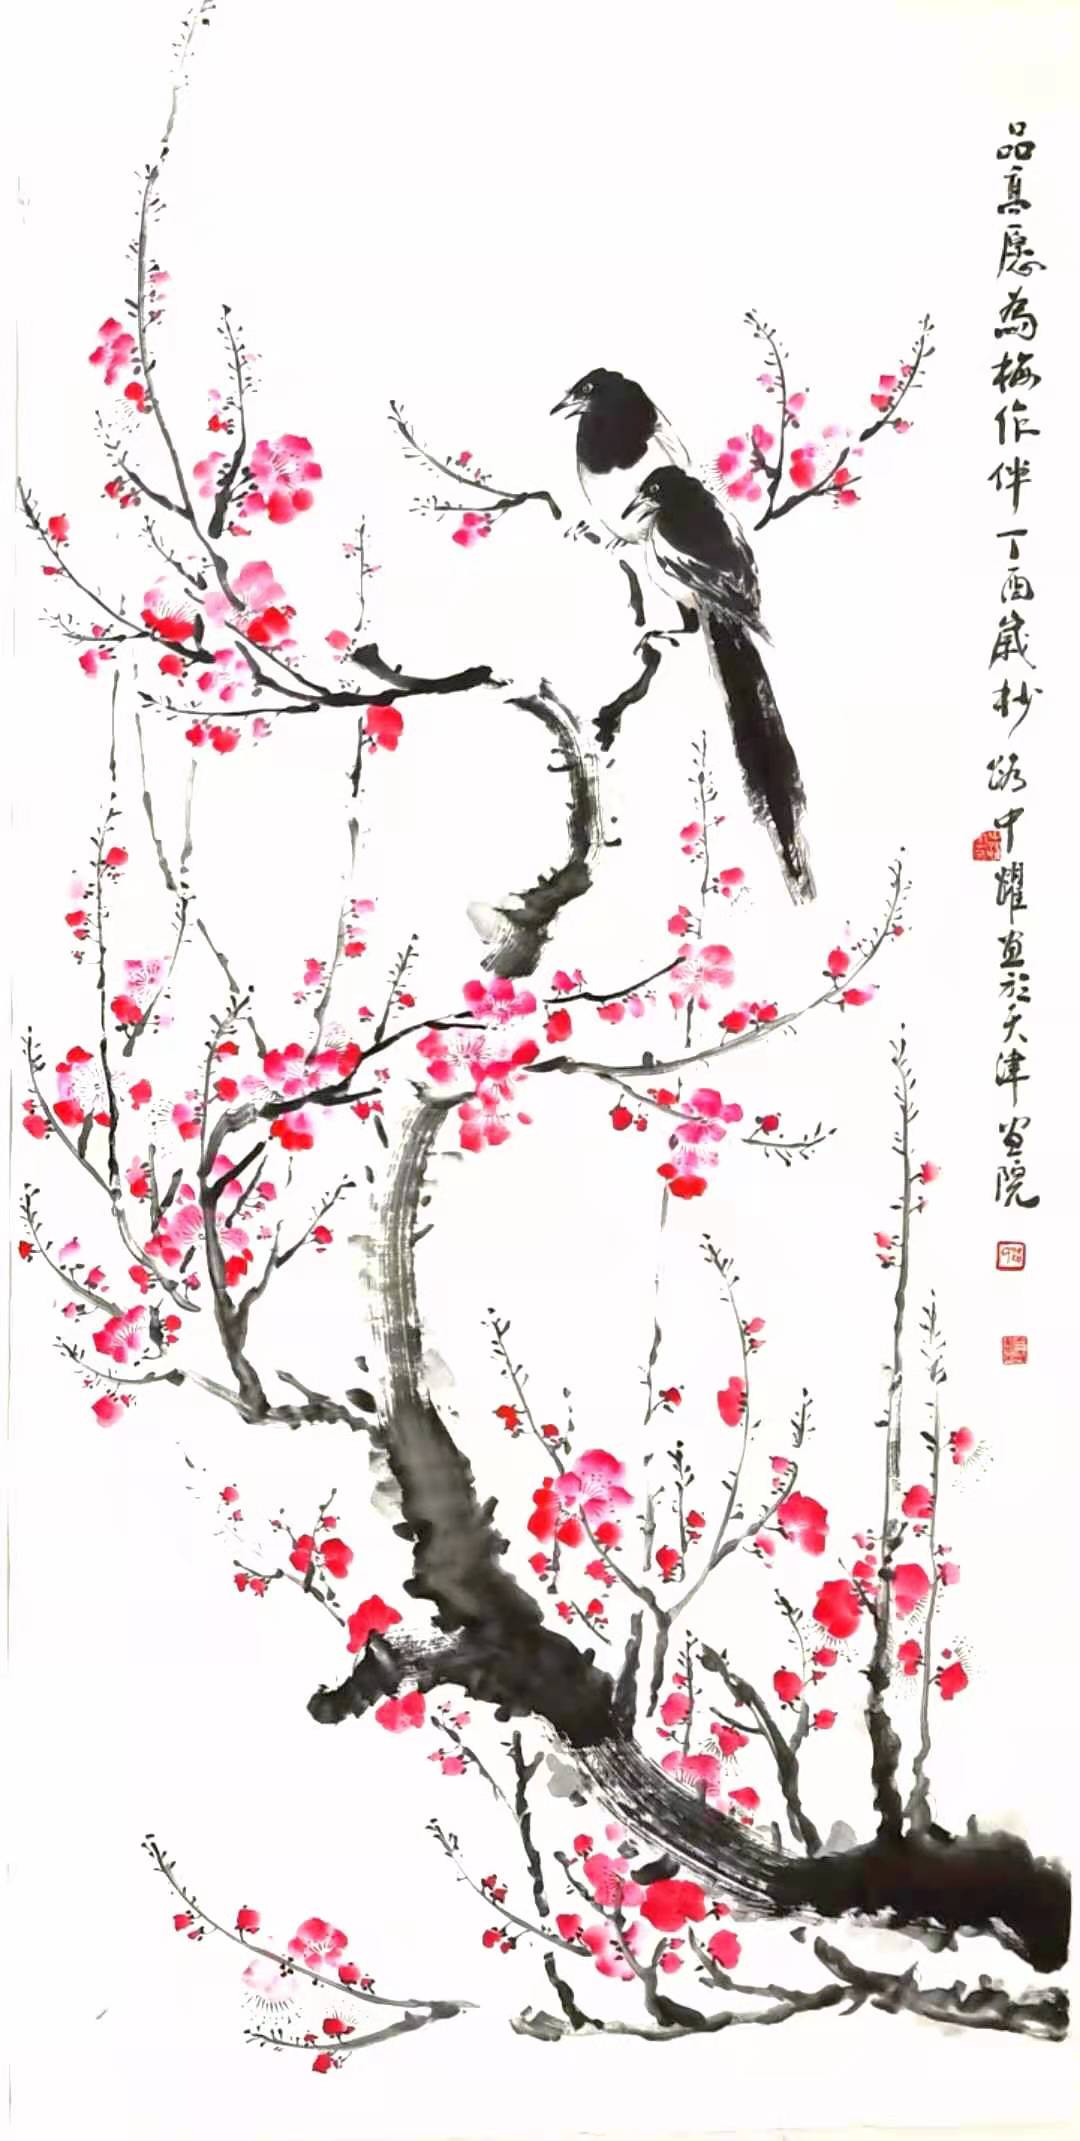 品高愿為梅作伴丁酉歲杪路中耀画於天津画院